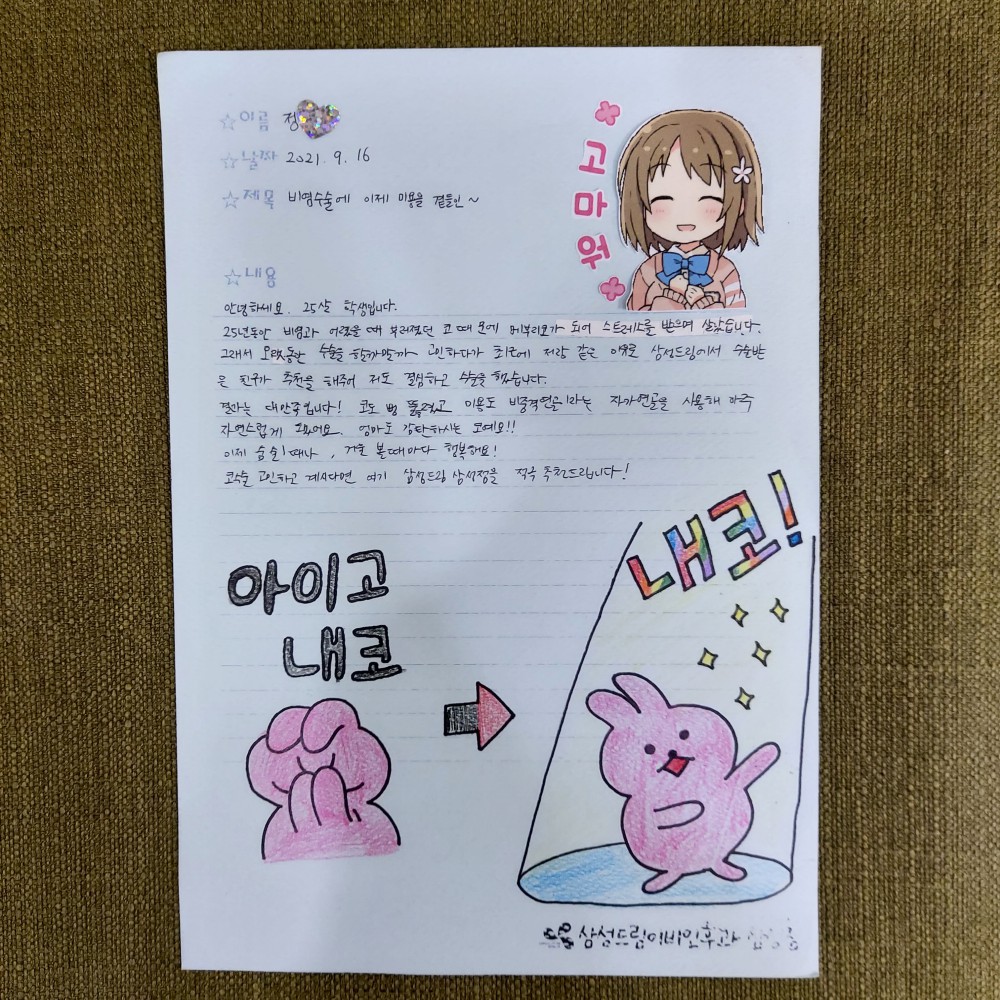 ☆이름 정
☆날짜 2021. 9. 16
☆제목 비염수술에 이제 미용을 곁들인~
고마워
☆내용
안녕하세요. 25살 학생입니다.
25년동안 비염과 어렸을 때 부러졌던 코 때문에 메부리코가 되어 스트레스를 받으며 살았습니다.
그래서 오랫동안 수술을 할까말까 고민하다가 최근에 저랑 같은 이유로 삼성드림에서 수술받
은 친구가 추천을 해주어 저도 결심하고 수술을 했습니다.
결과는 대만족입니다! 코도 뻥 뚫렸고 미용도 비중격연골이라는 자가연골을 사용해 아주
자연스럽게 됐어요. 엄마도 감탄하시는 코예요!!
이제 숨쉴때나, 거울 볼때마다 행복해요!
코수술 고민하고 계시다면 여기 삼성드림 삼성점을 적극 추천드립니다!
아이고
내코
내코!
삼성드림이비인후과